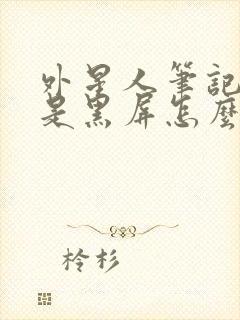 外星人筆記
是黑屏怎麼
柃杉